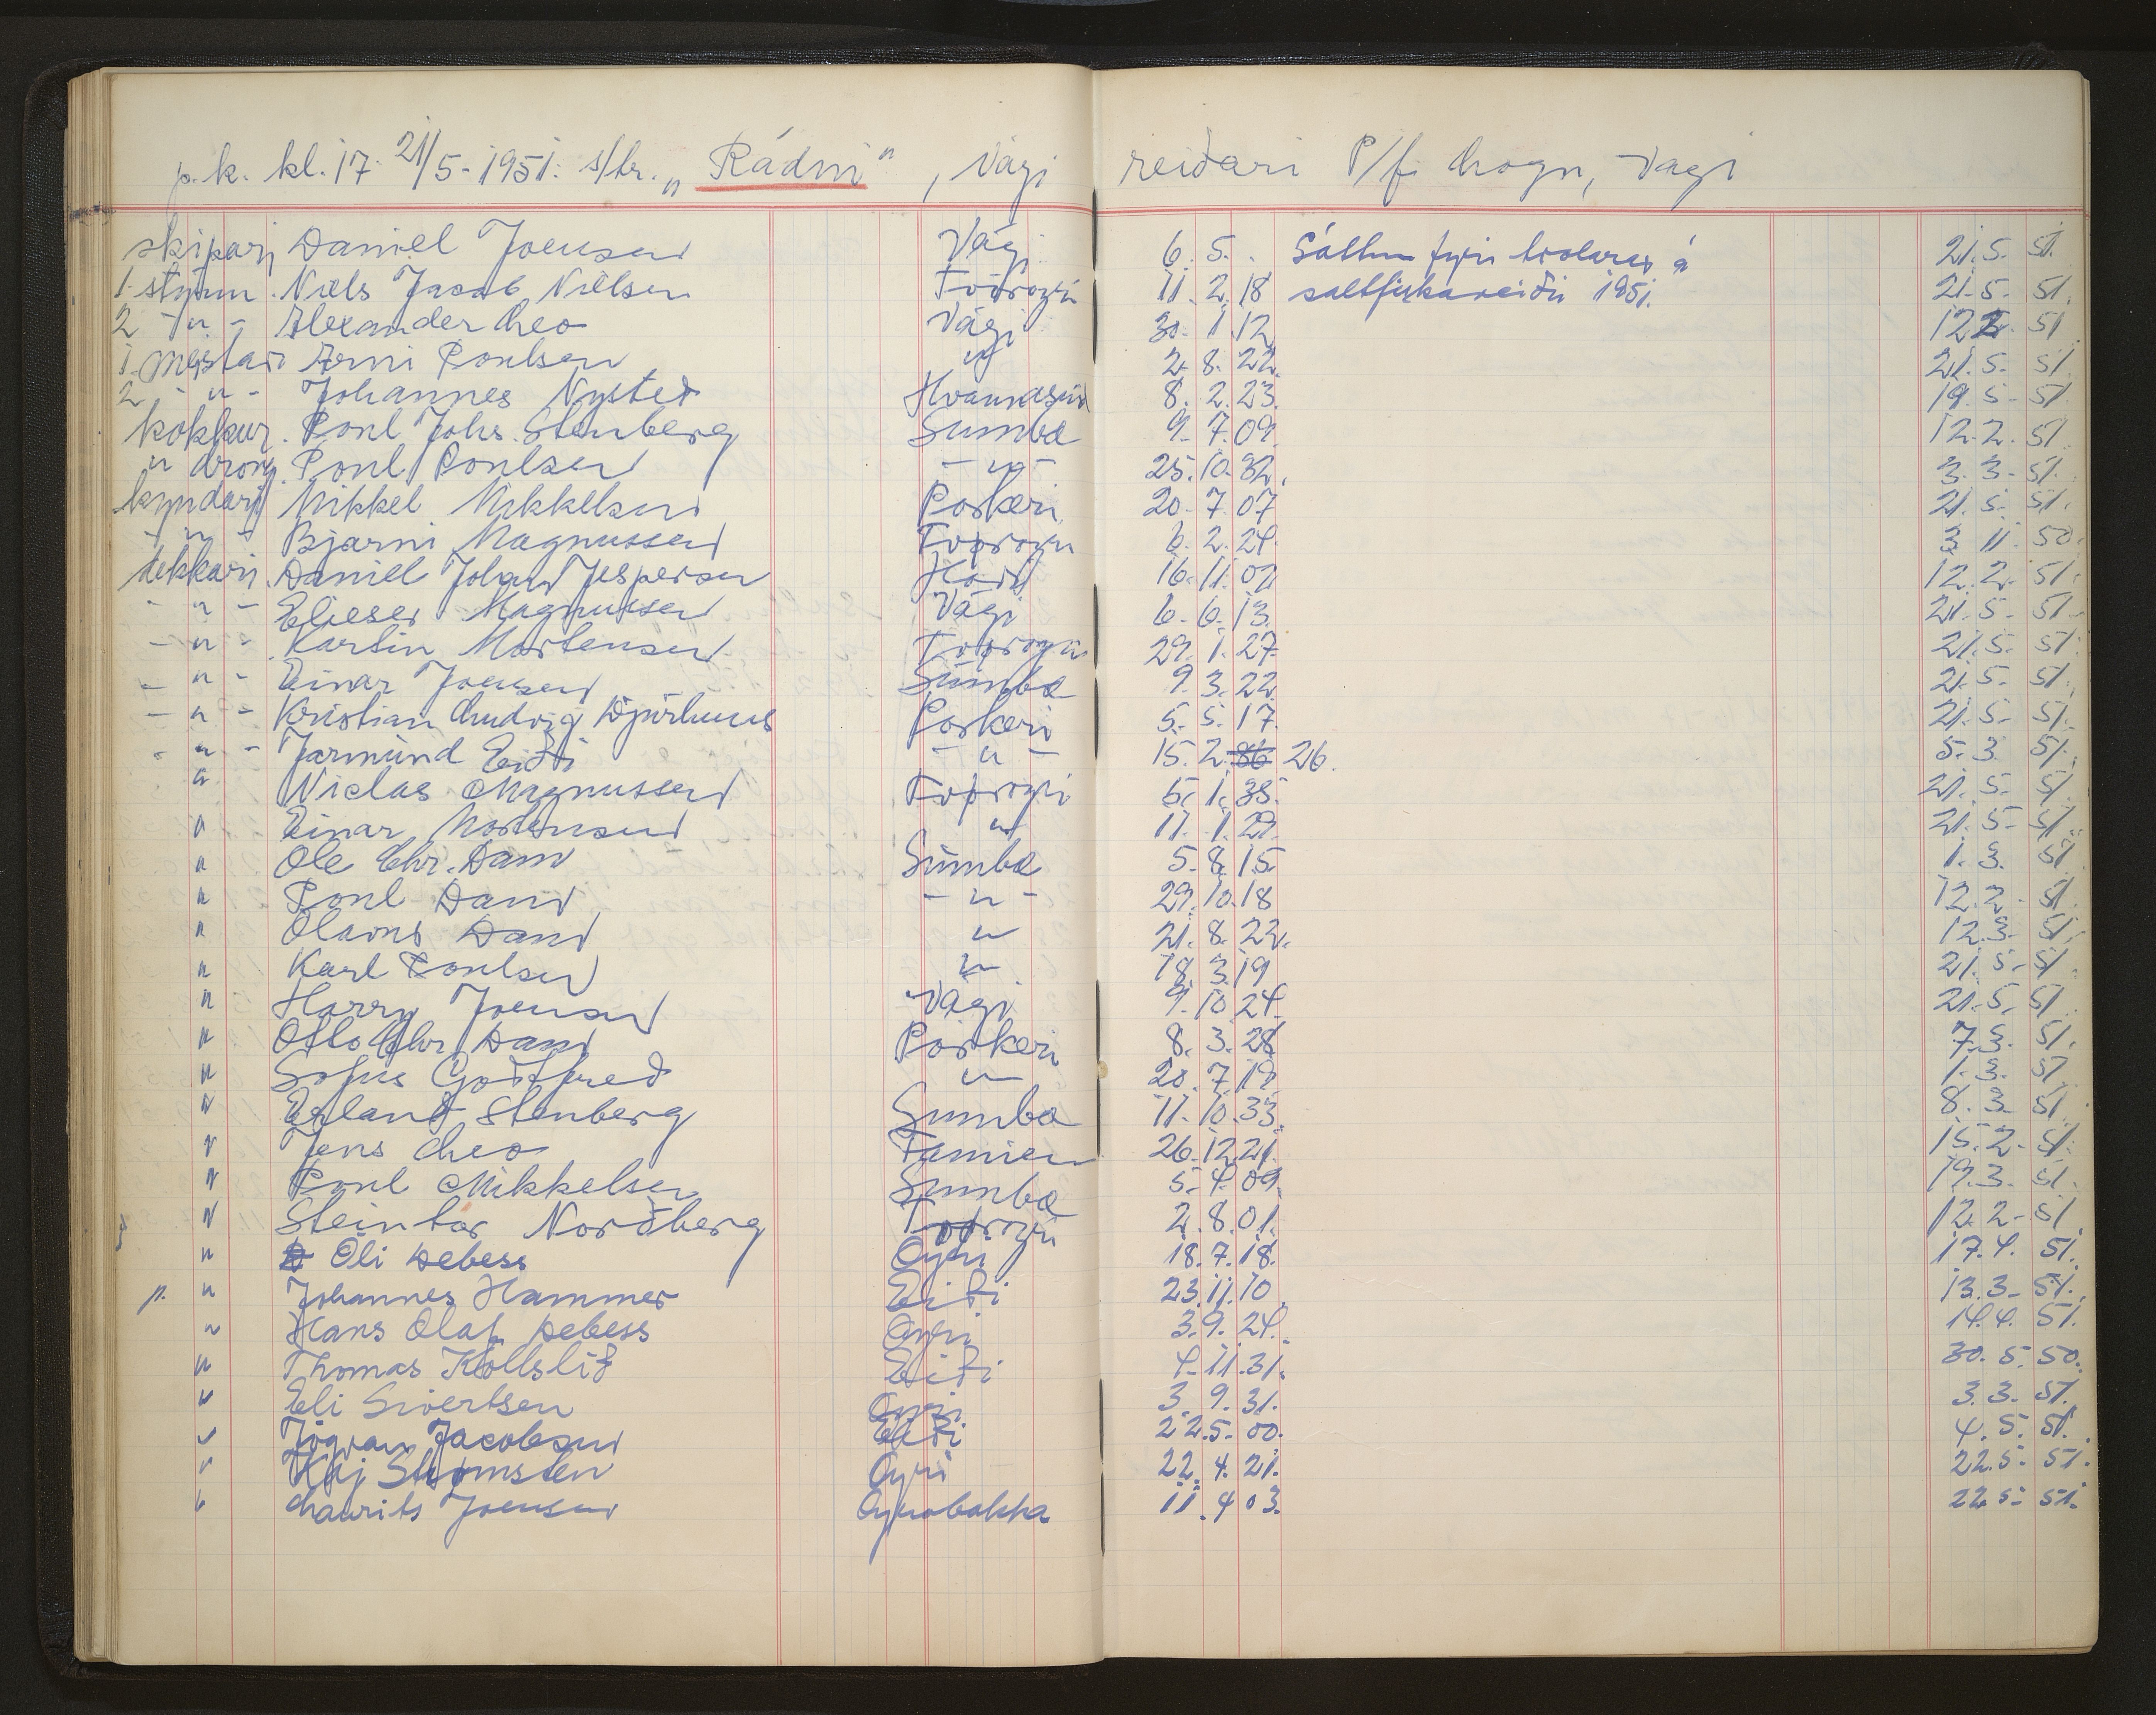 p.k. kl. 17 21/5-1951. s/tr. „Rádni", Vági reiðari P/f. Logn, Vagi
skipari Daniel Joensen Vági 6. 5. . Sáttm. fyri trolarar á 21. 5. 51.
1. stýrim. Niels Jacob Nielsen Tvöroyri 11. 2. 18 saltfiskaveiði 1951. 21. 5. 51.
2 -"- Alexander Leo Vági 30. 1. 12 12 2. 51
1. meistari Arni Poulsen " 2. 8. 22. 21. 5. 51.
2 -"- Johannes Nysted Hvannasund 8. 2. 23. 19. 5. 51
kokkur. Poul Johs. Stenberg Sumba 9. 7. 09. 12. 2. 51
" drong. Poul Poulsen -"- 25. 10. 32. 3. 3. 51.
kyndari Mikkel Mikkelsen Porkeri 20. 7. 07 21. 5. 51.
-"- Bjarni Magnussen Tvöroyri 6. 2. 24. 3 11. 50.
dekkari. Daniel Johan Jespersen Hov 16. 11. 02 12. 2. 51.
-"- Elieser Magnussen Vági 6. 6. 13. 21. 5. 51
-"- Karstin Mortensen Tvöroyri 29. 1. 27 21. 5. 51.
-"- Einar Joensen Sumba 9. 3. 22 21. 5. 51.
-"- Kristian Ludvig Djurhuus Porkeri 5. 5. 17. 21. 5. 51.
-"- Jarmund Eiði -"- 15. 2. 86 26. 5. 3. 51.
" Niclas Magnussen Tvöroyri 5. 1. 35. 21. 5. 51.
" Einar Mortensen " 17. 1. 29. 21. 5. 51.
" Ole Chr. Dam Sumba 5. 8. 15 1. 3. 51
" Poul Dam -"- 29. 10. 18 12. 2. 51.
" Olavus Dam " 21. 8. 22. 12. 3. 51
" Karl Poulsen " 18. 3. 19 21. 5. 51.
" Harry Joensen Vági 9. 10 24. 21. 5. 51
" Otto Chr. Dam Porkeri 8. 3. 28 7. 3. 51.
" Sofus Godtfred " 20. 7. 19 1. 3. 51
" Erland Stenberg Sumba 11. 10. 33. 8. 3. 51
" Jens Leo Famien 26. 12 21. 15. 2. 51.
" Poul Mikkelsen Sumba 5. 4. 09. 19. 3. 51.
" Steintor Nordberg Tvöroyri 2. 8. 01. 12. 2. 51
" Oli Debess Oyri 18. 7. 18. 17. 4. 51.
p. " Johannes Hammer Eiði 23. 11. 10 13. 3. 51.
" Hans Olaf Debess Oyri 3. 9. 24. 14. 4. 51.
" Thomas Kollslíð Eiði 4. 11. 31. 30. 5. 50.
" Eli Sivertsen Oyri 3. 9. 31. 3. 3. 51.
" Jógvan Jacobsen Eiði 22. 5. 00. 4. 5. 51.
" Kaj Strømsten Oyri 22. 4. 21. 22. 5. 51.
" Laurits Joensen Oyrabakka 11. 4 03. 22 5. 51.